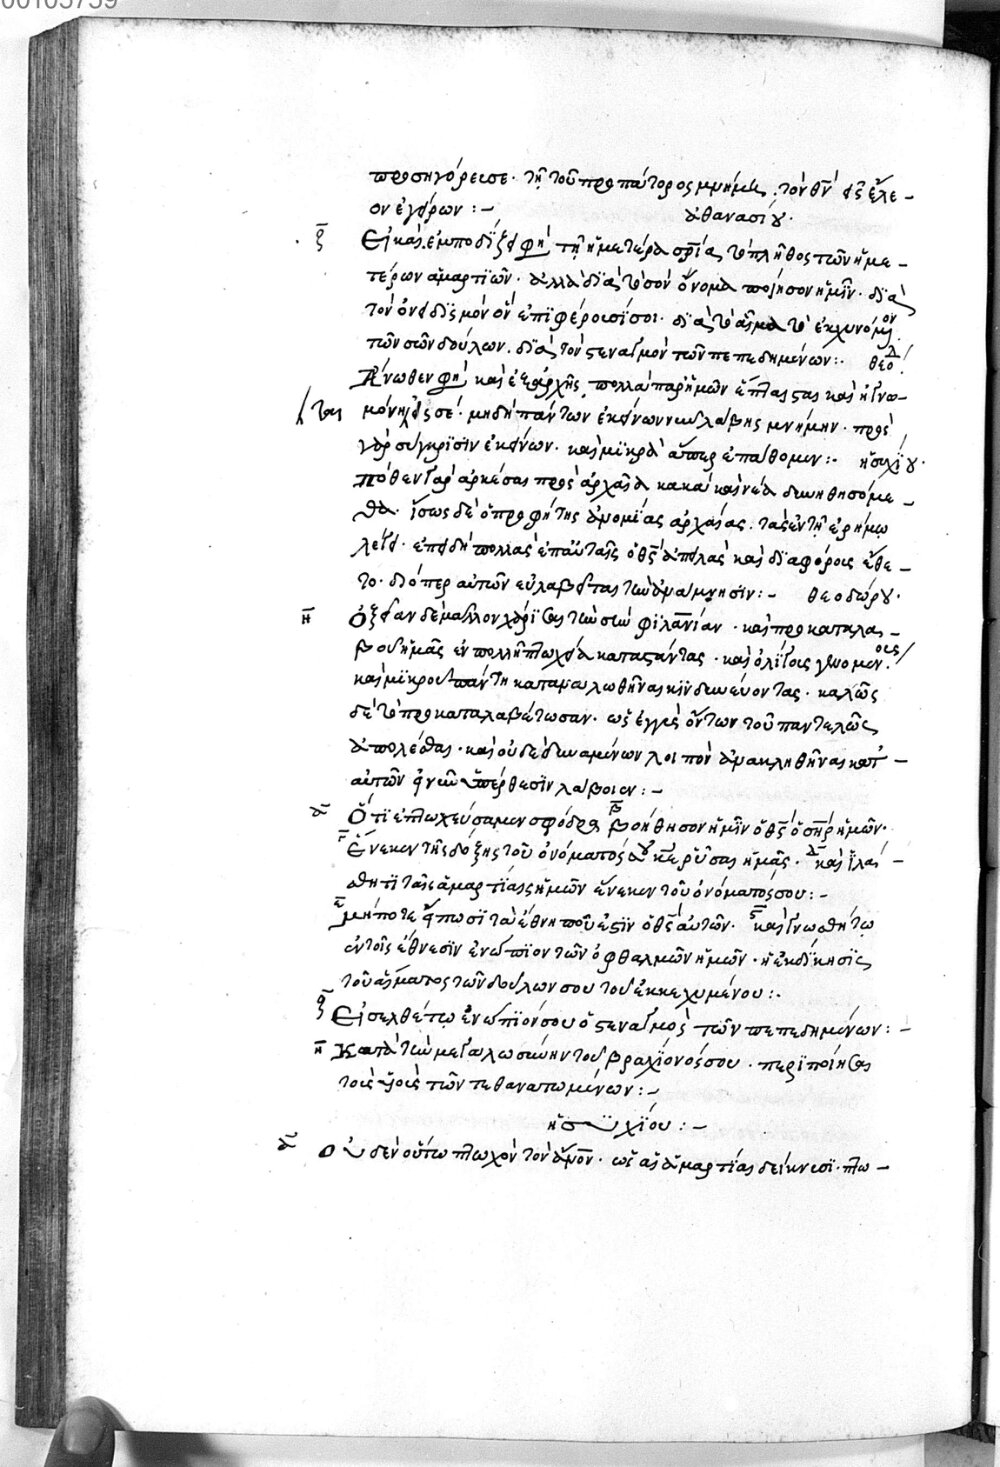 00103759
προσηγόρευσε· τῆ τοῦ προπάτορος μνήμη, τὸν θν εἰς ἔλε-
ον ἐγείρων :- ἀθανασίου·
ξ Εἰ καὶ ἐμποδίζει φησὶ τῆ ἡμετέρα σρία τὸ πλῆθος τῶν ἡμε-
τέρων ἁμαρτιῶν· ἀλλὰ διὰ τὸ σὸν ὄνομα ποίησον ἡμῖν· διὰ
τὸν ὀνειδισμὸν ὃν ἐπιφέρουσί σοι· διὰ τὸ αἷμα τὸ ἐκχυνόμενον
τῶν σῶν δούλων. διὰ τὸν στεναγμὸν τῶν πεπεδημένων:· θεοδ
Ἄνωθεν φησὶ καὶ ἐξαρχῆς πολλὰ παρ' ἡμῶν
μὴ δὴ πάντων ἐκείνων νῦν λάβης μνήμην· πρὸς
γὰρ σύγκρισιν ἐκείνων· καὶ μικρὰ ἅπερ ἐπάθομεν:· ἡσυχίου·
Πόθεν γὰρ ἀρκέσαι πρὸς ἀρχαῖα κακὰ καὶ νέα δυνηθησόμε-
θα· ἴσως δὲ ὁ προφήτης ἀνομίας ἀρχαίας· τὰς ἐν τῆ ἐρήμω
λέγει· ἐπειδὴ πολλὰς ἐπ' αὐταῖς ὁ θς ἀπειλὰς καὶ διαφόρους ἔθε-
το· διόπερ αὐτῶν εὐλαβεῖται τὴν ἀνάμνησιν:- θεοδώρου·
η Ὀξεῖαν δὲ μᾶλλον χάρισαι τὴν σὴν φιλανίαν· καὶ προκαταλα-
βοῦ ἡμᾶς ἐν πολλῆ πτωχεία καταστάντας· καὶ ὀλίγους γενομένους
καὶ μικροῦ πάντη καταναλωθῆναι κινδυνεύοντας· καλῶς
δὲ τὸ προκαταλαβέτωσαν· ὡς ἐγγὺς ὄντων τοῦ παντελῶς
ἀπολέσθαι· καὶ οὐδὲ δυναμένων λοιπὸν ἀνακληθῆναι κατ' -
αὐτῶν εἰ γοῦν ὑπέρθεσιν λάβοιεν:-
α Ὅτι ἐπτωχεύσαμεν σφόδρα β βοήθησον ἡμῖν ὁ θς ὁ σηρ ἡμῶν·
γ Ἕνεκεν τῆς δόξης τοῦ ὀνόματός σου κε ῥῦσαι ἡμᾶς. δ καὶ ἱλά-
σθητι ταῖς ἁμαρτίαις ἡμῶν ἕνεκεν τοῦ ὀνόματος σου:-
ε μήποτε εἴπωσι τὰ ἔθνη ποῦ ἐστιν ὁ θς αὐτῶν· ς καὶ γνωσθήτω
ἐν τοῖς ἔθνεσιν ἐνώπιον τῶν ὀφθαλμῶν ἡμῶν· ἡ ἐκδίκησις
τοῦ αἵματος τῶν δούλων σου τοῦ ἐκκεχυμένου:·
ζ Εἰσελθέτω ἐνώπιόν σου ὁ στεναγμὸς τῶν πεπεδημένων:-
η Κατὰ τὴν μεγαλωσύνην τοῦ βραχίονός σου· περιποίησαι
τοὺς υἱοὺς τῶν τεθανατωμένων:-
ἡσυχίου:-
α Οὐδὲν οὕτω πτωχὸν τὸν ἄνον· ὡς αἱ ἁμαρτίαι δείκνυσι· πτω-